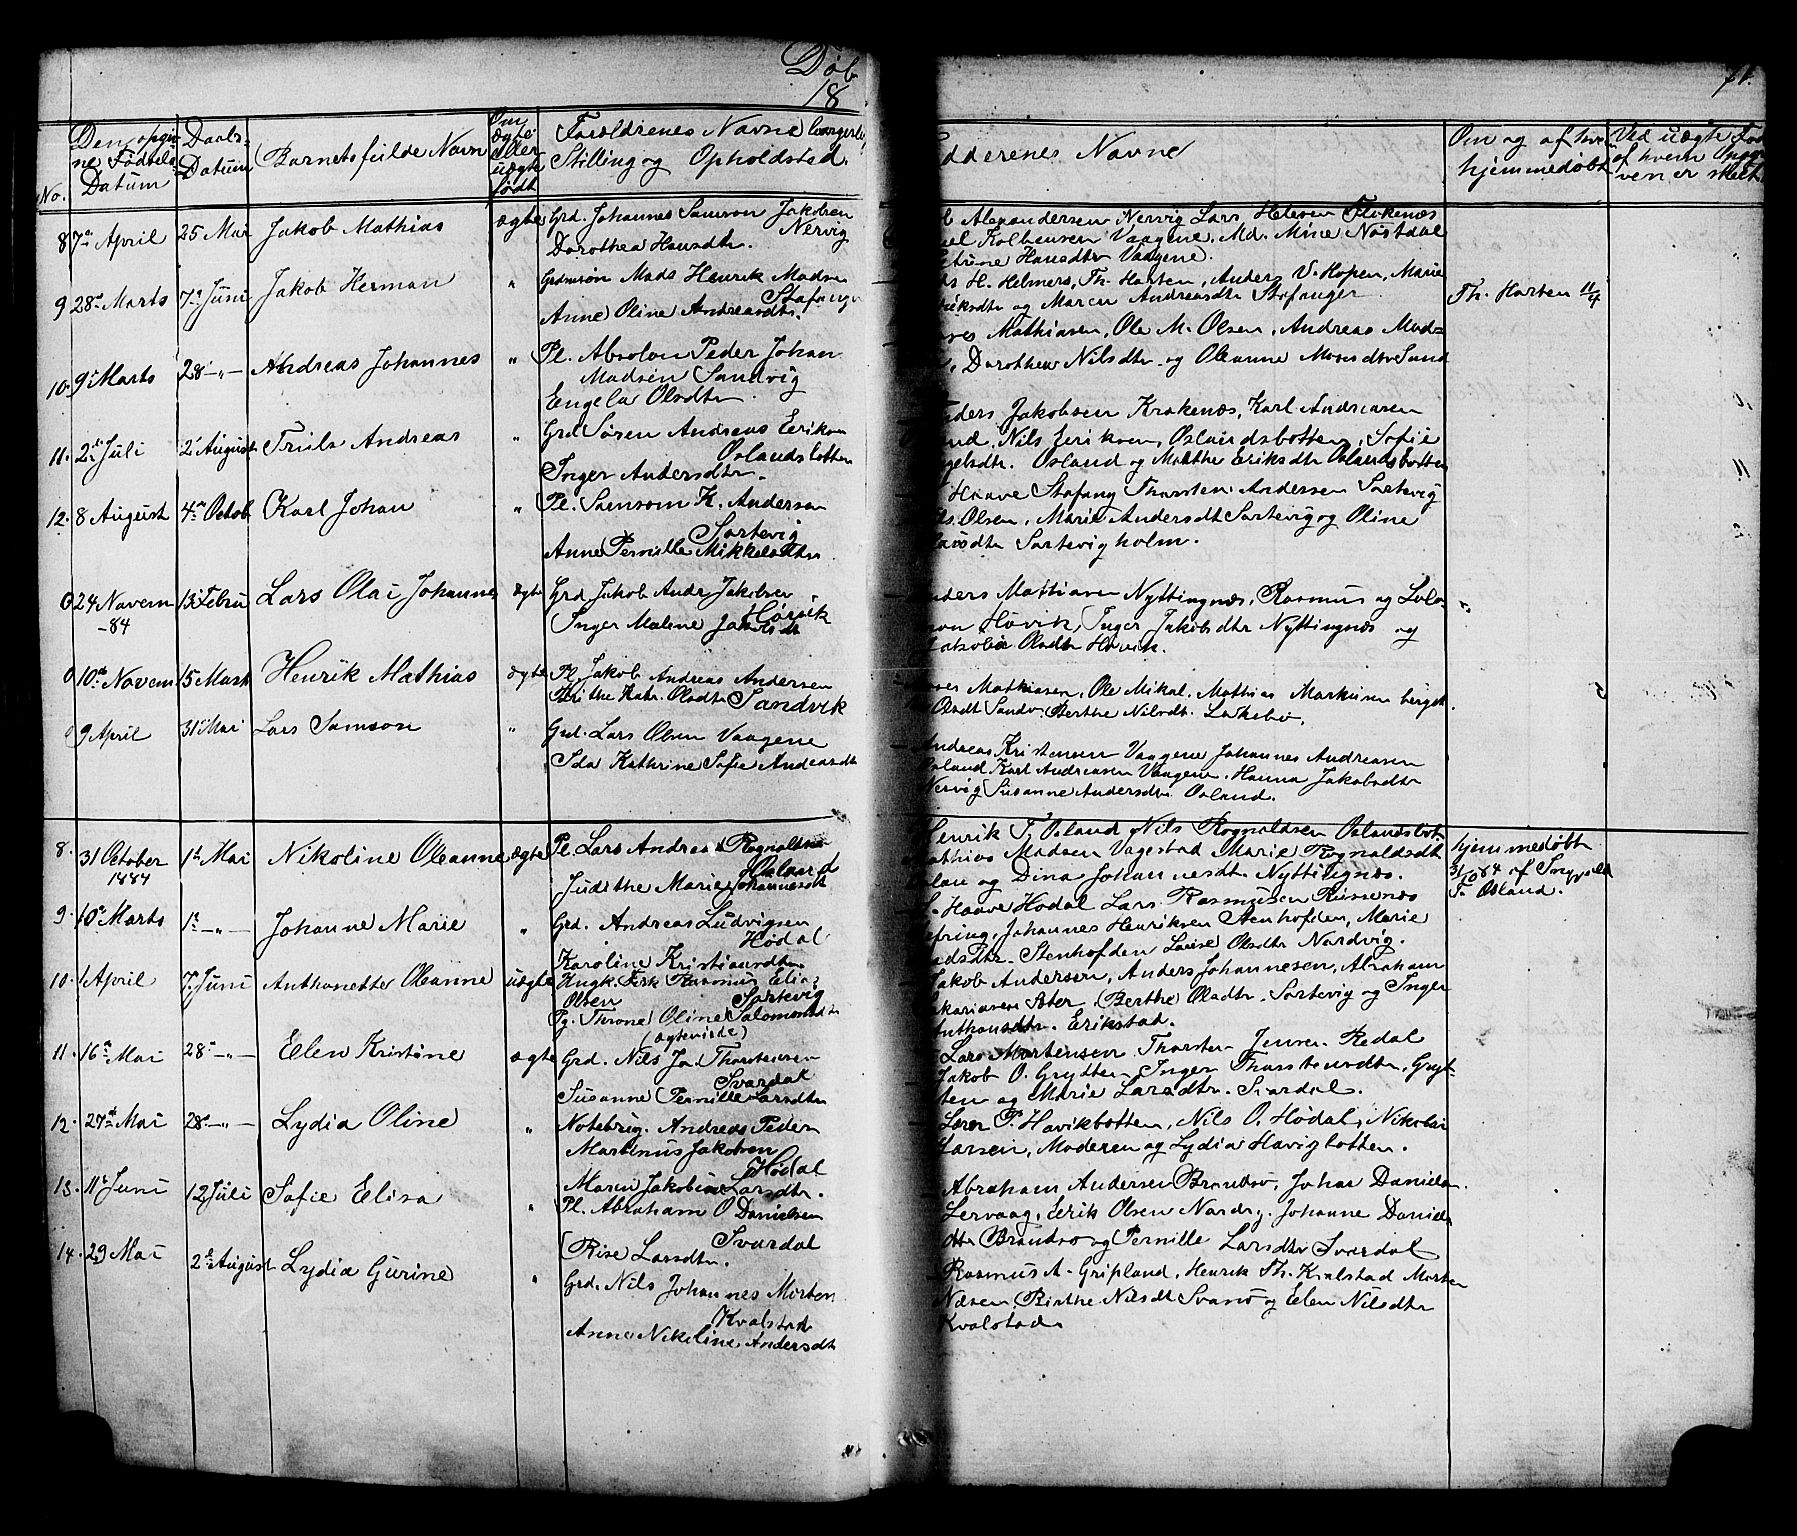 Døb
18
71.
No.
Den opgiv-
ne Fødsels
Datum
Daabs-
Datum
Barnets fulde Navn
Om
ægte
Eller
uægte
født
Forældrenes Navne borgerlig
Stilling og Opholdsted.
dderenes Navne
Om og af hvem
hjemmedøbt
Ved uægte Fød
af hvem Opgi
ven er skeet.
8 7de April 25 Mai Jakob Mathias ægte Grd. Johannes Samson Jakobsen
Nervig
Dorothea Hansdtr.
Alexandersen Nervig Lars Helesen Flokenæs
Vaagene. Md. Mine Nøstdal
Hansdtr Vaagene.
9 28de Marts 7de Juni Jakob Herman " Grdmsøn Mads Henrik Madsen
Stafanger
Anne Oline Andreasdtr.
H. Helmers, Th. Horten, Anders V. Hopen, Marie
og Maren Andreasdtr Stafanger
Th. Horten 11/4
10. 9de Marts 28 -"- Andreas Johannes " Pl. Absolon Peder Johan
Madsen Sandvig
Engela Olsdtr
Mathiasen, Ole M. Olsen, Andreas Mad-
Dorothea Nilsdtr. og Oleanne Monsdtr Sand
11. 2de Juli 2 August Truls Andreas " Grd Søren Andreas Eriksen
Oslandsbotten
Inger Andersdtr.
Jakobsen Krakenæs, Karl Andreasen
Nils Eriksen, Oslandsbotten, Sofie
Osland og Malthe Eriksdtr Oslandsbotten
12. 8 August 4de Octob Karl Johan " Pl. Samsom K. Andersen
Sortevig
Anne Pernille Mikkelsdtr
Haave Stafang Thorsten Andersen Sortevig
Olsen, Marie Andersdt Sortevig og Oline
Sortevigholm.
24 Novem 13 Febru Lars Olai Johannes ægte Grd Jakob Andr Jakobsen
-84
Høivik
Inger Malene Jakobsdt
Mathiasen Nyttingnæs, Rasmus og
Høvik, Inger Jakobsdtr Nyttingnæs og
Jakobie Olsdtr Høvik.
10de Novem 15 Marts Henrik Mathias ægte Pl. Jakob Andreas Andersen
Olsdtr Sandvik
Mathiasen, Ole Mikal, Mathias Markusen
Olsdt Sandv. Berthe Nilsdt.
9 April 31 Mai Lars Samson " Grd. Lars Olsen Vaagene
Ida Kathrine Sofie Andreasdt
Andreas Kristensen Vaagene Johannes Andreasen
Osland Karl Andreasen Vaagene. Hanna Jakobsdtr
Nervig Susanne Andersdtr Osland.
8. 31 October 1de Mai Nikoline Oleanne ægte Pl. Lars Andreas Rognaldsen
1884
Osland
Judithe Marie Johannesdt
Henrik T. Osland Nils Rognaldsen Oslandsbot.
Mathias Madsen Vagestad Marie Rognaldsdt
og Dina Johannesdt. Nyttingnæs.
hjemmedøbt
31/10 84 af
T. Osland.
9. 10de Marts 1de -"- Johanne Marie " Grd. Andreas Ludvigsen
Hødal
Karoline Kristiansdtr
Haave Hødal Lars Rasmusen Risnenæs
Johannes Henriksen Stenhofden, Marie
Stenhofden Lovise Olsdtr Nordvig.
10. 1 April 7de Juni Anthonette Oleanne uægte Ungk. Fisk Rasmus Elias
Olsen Sortevig
Pg. Throne Oline Salomonsdtr
(ægteviede)
Jakob Andersen, Anders Johannesen, Abraham
Berthe Olsdtr. Sortevig og Inger
Anthonsdtr. Erikstad.
11. 16de Mai 28de -"- Elen Kristine ægte Grd. Nils Ja. Thorstensen
Svardal
Susanne Pernille Larsdtr
Lars Mortensen Thorsten Jensen Redal
Jakob O. Grytten Inger Thorstensdtr, Gryt-
ten og Marie Larsdtr. Svardal.
12. 27de Mai 28de -"- Lydia Oline " Notebrug. Andreas Peder
Martinus Jakobsen
Hødal
Maren Jakobine Larsdtr.
Lars P. Havikbotten, Nils O. Hødal, Nikolai
Larsen, Moderen og Lydia Havigbotten.
13. 11te Juni 12 Juli Sofie Elisa " Pl. Abraham O Danielsen
Svardal
Rise Larsdtr.
Abraham Andersen Brandsø, Johan Daniels.
Lervaag, Erik Olsen Nordv. Johanne Daniels
dtr Brandsø og Pernille Larsdtr Svardal
14. 29 Mai 2de August Lydia Gurine " Grd. Nils Johannes Morten
Kvalstad
Anne Nikoline Andersdtr
Rasmus A. Gripland, Henrik Th. Kvalstad Morten
Næsen, Birthe Nilsdt Svanø og Elen Nilsdtr
Kvalstad